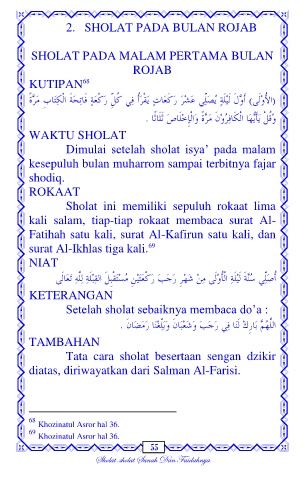 2. SHOLAT PADA BULAN ROJAB
SHOLAT PADA MALAM PERTAMA BULAN
ROJAB
KUTIPAN⁶⁸
(الأُوْلَى) أَوَّلَ لَيْلَةٍ يُصَلِّي عَشْرَ رَكَعَاتٍ يَقْرَأُ فِي كُلِّ رَكْعَةٍ فَاتِحَةَ الْكِتَابِ مَرَّةً
وَقُلْ يَأَيُّهَا الْكَافِرُوْنَ مَرَّةً وَالْإِخْلَاصَ ثَلَاثًا .
WAKTU SHOLAT
Dimulai setelah sholat isya' pada malam
kesepuluh bulan muharrom sampai terbitnya fajar
shodiq.
ROKAAT
Sholat ini memiliki sepuluh rokaat lima
kali salam, tiap-tiap rokaat membaca surat Al-
Fatihah satu kali, surat Al-Kafirun satu kali, dan
surat Al-Ikhlas tiga kali.⁶⁹
NIAT
أُصَلِّي سُنَّةَ لَيْلَةِ الْأُوْلَى مِنْ شَهْرِ رَجَبَ رَكْعَتَيْنِ مُسْتَقْبِلَ القِبْلَةِ لِلَّهِ تَعَالَى
KETERANGAN
Setelah sholat sebaiknya membaca do'a :
اللَّهُمَّ بَارِكْ لَنَا فِي رَجَبَ وَشَعْبَانَ وَبَلِّغْنَا رَمَضَانَ .
TAMBAHAN
Tata cara sholat besertaan sengan dzikir
diatas, diriwayatkan dari Salman Al-Farisi.
⁶⁸ Khozinatul Asror hal 36.
⁶⁹ Khozinatul Asror hal 36.
55
Sholat-sholat Sunah Dan Faidahnya